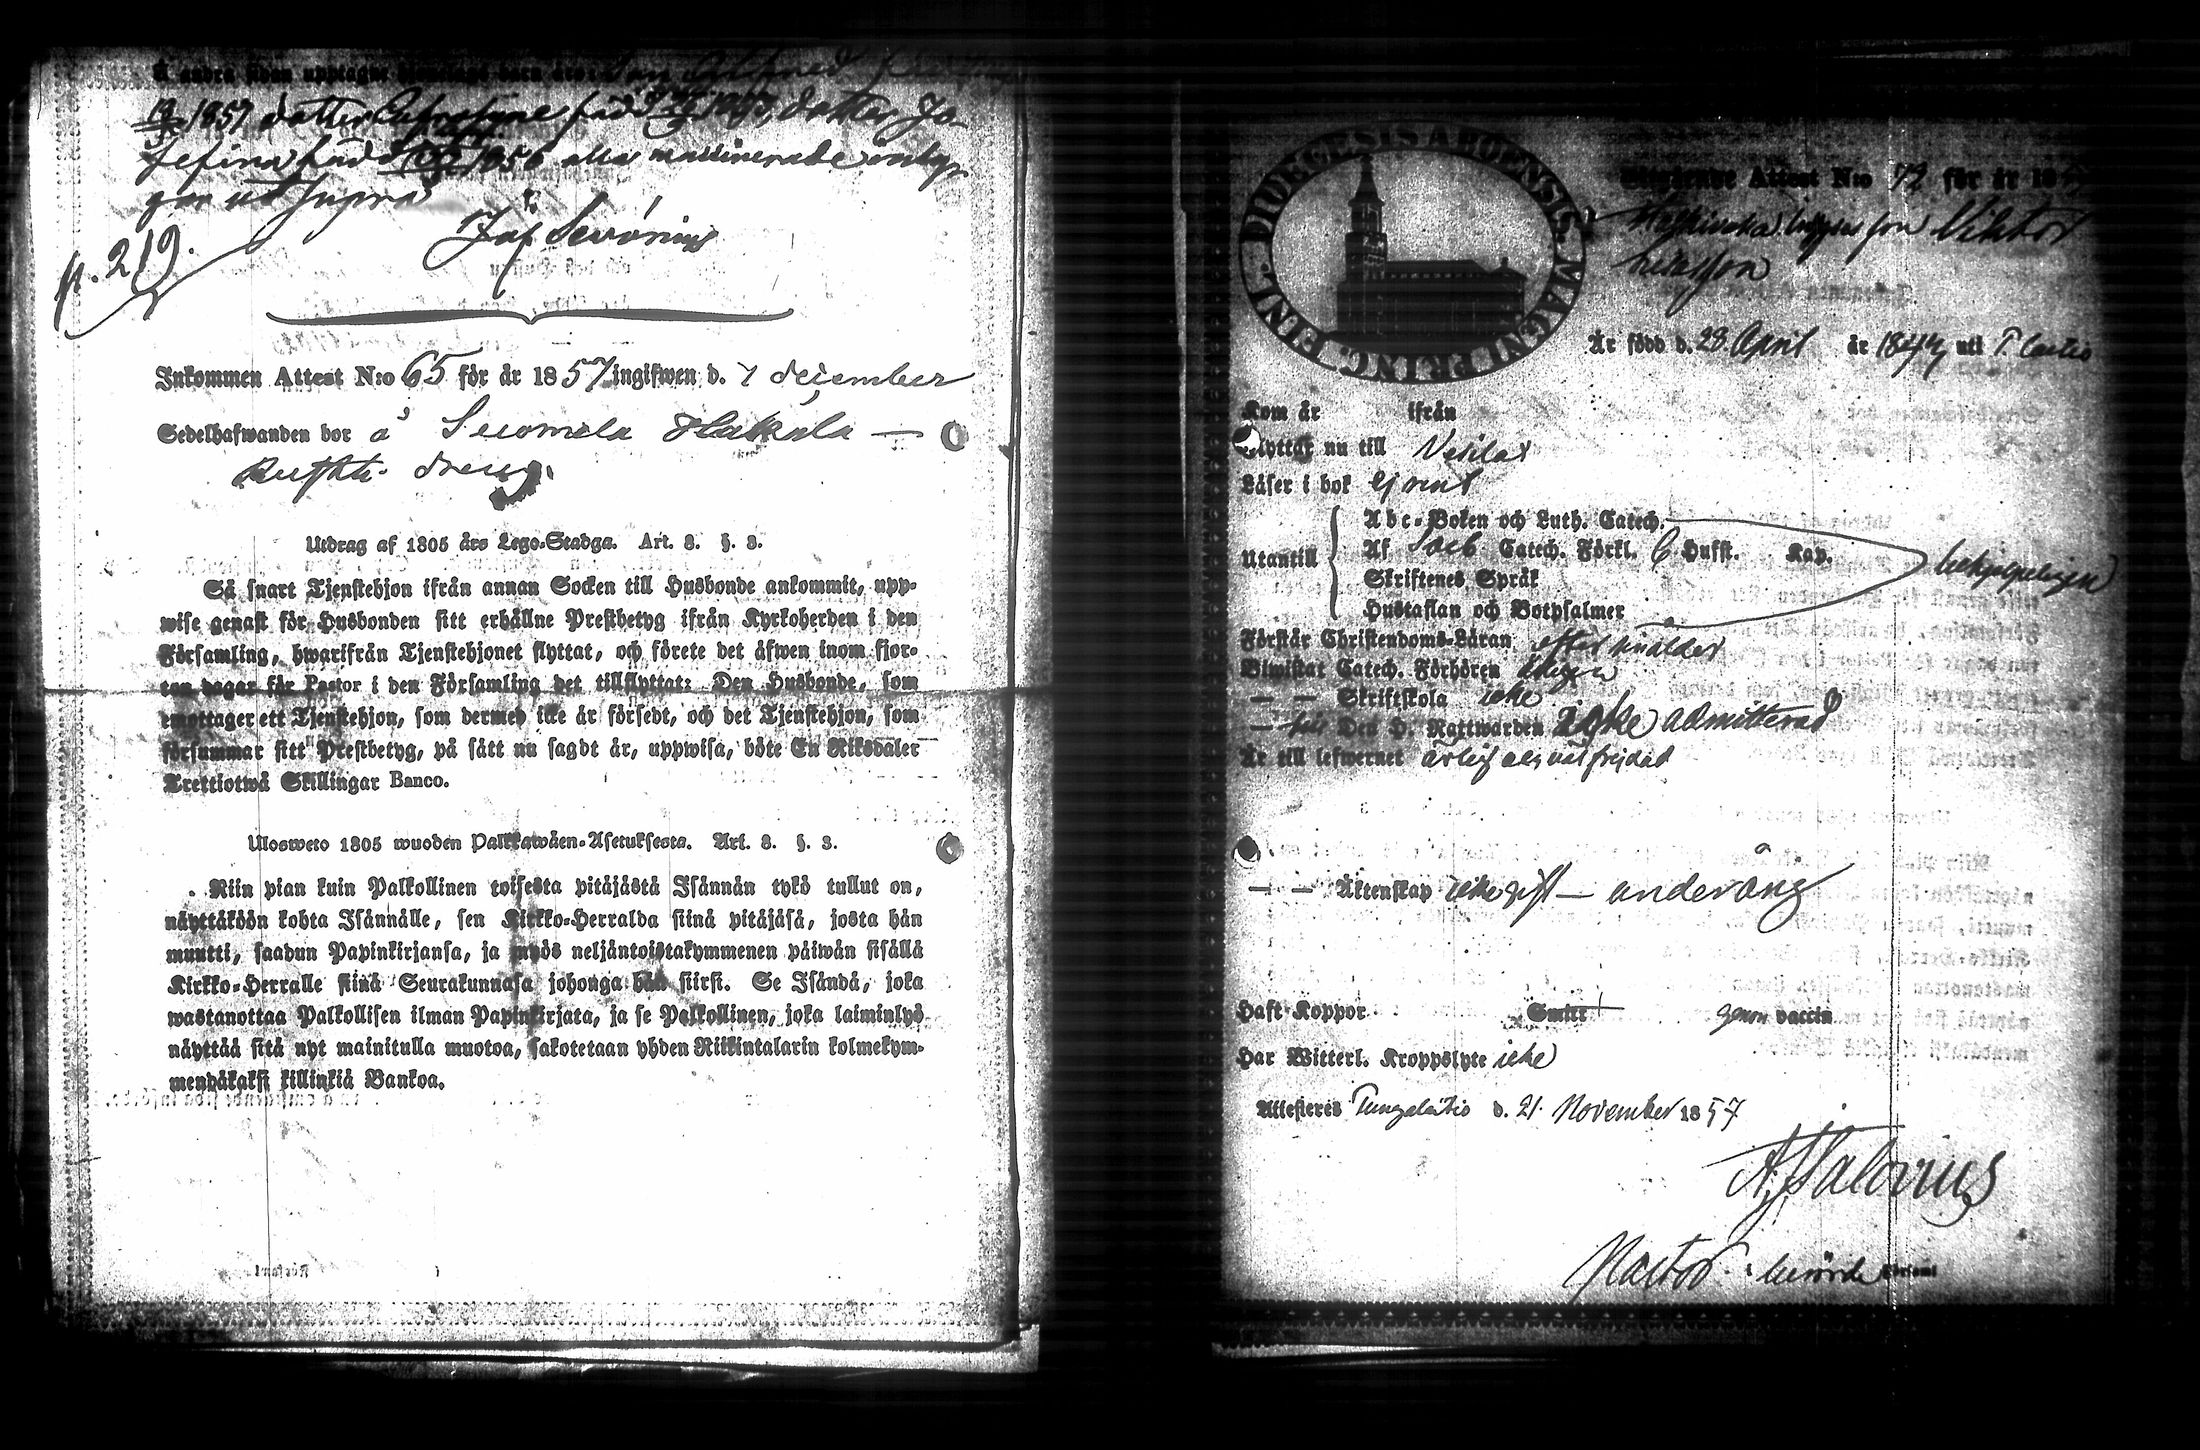 Å andra sidan upptagne
19/1857 dotter Eufrosyne född 1853, dotter Jo-
sefina född 1856 alla vaccinerade intyg-
gar ut supra
p. 219.
Inkommen Attest N:o 65 för år 1857 ingifwen d. 7 december
Sedelhafwanden bor å Suomela Hakala —
dreng.
Utdrag af 1805 års Lego-Stadga. Art. 8. §. 3.
Så snart Tjenstehjon ifrån annan Socken till Husbonde ankommit, upp-
wise genast för Husbonden sitt erhållne Prestbetyg ifrån Kyrkoherden i den
Församling, hwarifrån Tjenstehjonet flyttat, och förete det äfwen inom fjor-
ton dagar för Pastor i den Församling det tillflyttat: Den Husbonde, som
emottager ett Tjenstehjon, som dermed icke är försedt, och det Tjenstehjon, som
försummar sitt Prestbetyg, på sätt nu sagdt är, uppwisa, böte En Riksdaler
Trettiotwå Skillingar Banco.
Ulosweto 1805 wuoden Palkkawäen-Asetuksesta. Art. 8. §. 3.
Niin pian kuin Palkollinen toisesta pitäjästä Isännän tykö tullut on,
näyttäköön kohta Isännälle, sen Kirkko-Herralda siinä pitäjäsä, josta hän
muutti, saadun Papinkirjansa, ja myös neljäntoistakymmenen päiwän sisällä
Kirkko-Herralle siinä Seurakunnasa johonga hän siirsi. Se Isändä, joka
wastanottaa Palkollisen ilman Papinkirjata, ja se Palkollinen, joka laiminlyö
näyttää sitä nyt mainitulla muotoa, sakotetaan yhden Riikintalarin kolmekym-
mendäkaksi killinkiä Bankoa.
DIOECESIS ABOENSIS. MAGNI PRINC. FINL.
Utgående Attest N:o 72 för år 18
son Viktor
Är född d. 23 April år 1844 uti T. Lartis
Kom år ifrån
Flyttar nu till Vesilax
Läser i bok ej rent
Utantill
Abc-Boken och Luth. Catech.
Af Sveb Catech. Förkl. 6 Hufst. Kap.
Skriftenes Språk
Hustaflan och Botpsalmer
behjelpeligen
Förstår Christendoms-Läran efter sin ålder
Biwistat Catech. Förhören
— — Skriftskola icke
— Den H. Nattwarden icke admitterad
Är till lefwernet ärlig och väl frejdad
— — Äktenskap icke gift — underårig
Haft Koppor genom vaccin
Har Witterl. Kroppslyte icke
Attesteres Tungelartis d. 21. November 1857
A. J. Salovius
Pastor